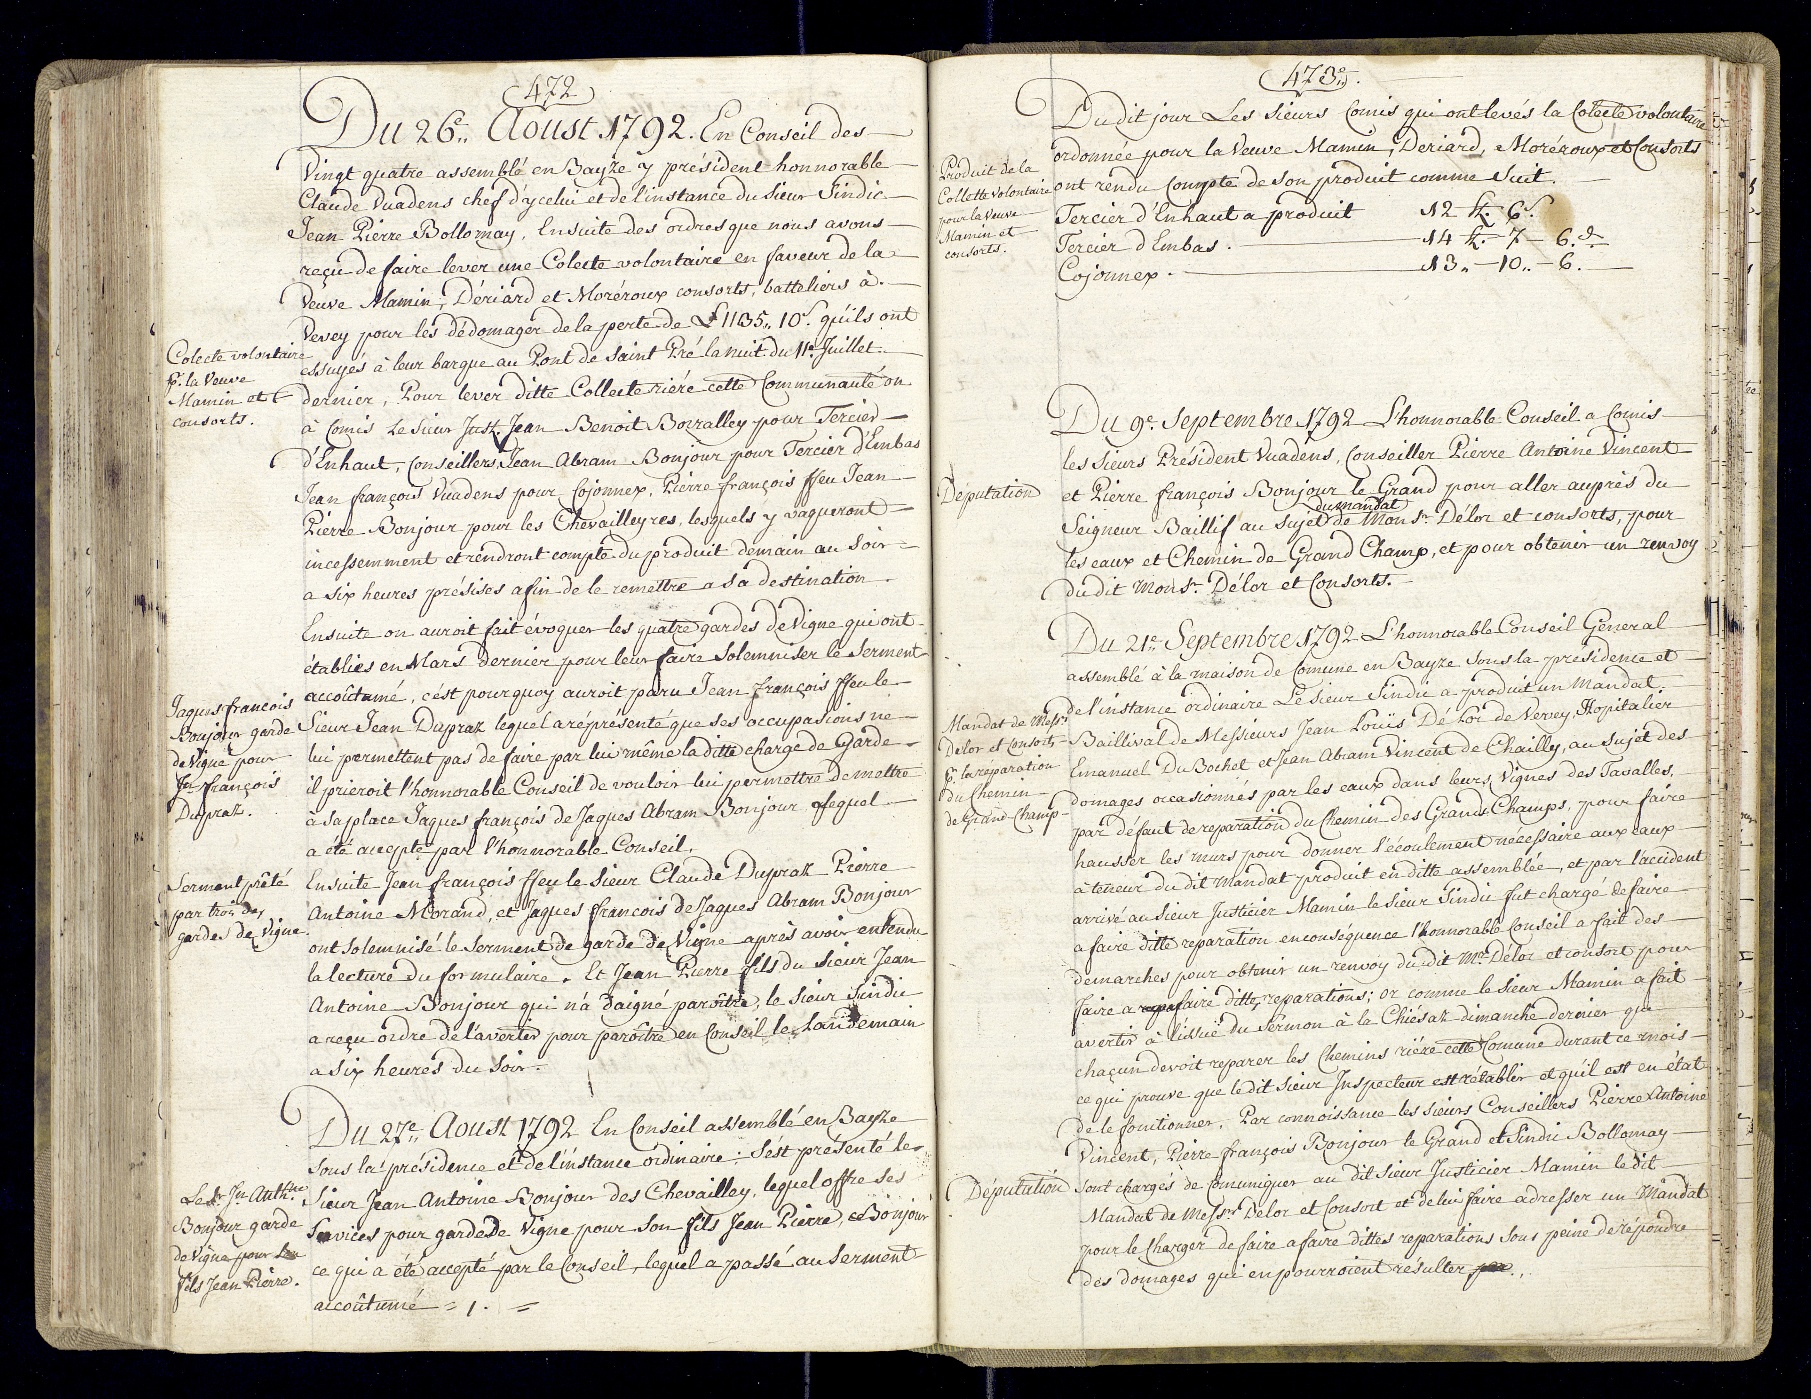 472
Du 26e,, Aoust 1792. En Conseil des
Vingt quatre assemblé en Bayze y président honnorable
Claude Vuadens chef d'ycelui et de l'instance du Sieur Sindic
Jean Pierre Bollomay, Ensuite des ordres que nous avons
reçu de faire lever une Colecte volontaire en faveur de la
Veuve Mamin, Dériard et Moréroux consorts, batteliers à
Vevey pour les dédomager de la perte de L 1135,, 10 s. qu'ils ont
essuyés à leur barque au Pont de Saint Pré la nuit du 11e Juillet
dernier, Pour lever ditte Collecte riére cette Communauté on
à Comis le Sieur Just. Jean Benoit Borralley pour Tercier
d'Enhaut, Conseillers Jean Abram Bonjour pour Tercier d'Embas
Jean françois Vuadens pour Cojonnex, Pierre françois ffeu Jean
Pierre Bonjour pour les Chevailleyres, lesquels y vaqueront
incessemment et rendront compte du produit demain au Soir
a six heures présises afin de le remettre a sa destination.
Colecte volontaire
pr. la Veuve
Mamin et
consorts.
Ensuite on auroit fait évoquer les quatre gardes de Vigne qui ont
établies en Mars dernier pour leur faire Solemniser le Serment
accoûtumé, c'ést pourquoy auroit paru Jean françois ffeu le
Sieur Jean Dupraz lequel a réprésenté que ses occupasions ne
lui permettent pas de faire par lui même la ditte charge de Garde
il prieroit l'honnorable Conseil de vouloir lui permettre de mettre
à sa place Jaques françois de Jaques Abram Bonjour lequel
a été accepté par l'honnorable Conseil.
Jaques francois
Bonjour garde
de Vigne pour
Jn. françois
Dupraz.
Ensuite Jean françois ffeu le Sieur Claude Dupraz Pierre
Antoine Morand, et Jaques francois de Jaques Abram Bonjour
ont Solemnisé le Serment de garde de Vigne après avoir entendu
la lecture du formulaire. Et Jean Pierre fils du Sieur Jean
Antoine Bonjour qui n'a daigné parôitre, le Sieur Sindic
a reçu ordre de l'avertir pour parôitre en Conseil le Landemain
a six heures du Soir.
Serment prêté
par trois des
gardes de Vigne
Du 27e,, Aoust 1792 En Conseil assemblé en Bayze
Sous la présidence et de l'instance ordinaire: S'ést présenté le
Sieur Jean Antoine Bonjour des Chevailley, lequel offre ses
Services pour garde de Vigne pour Son fils Jean Pierre, Bonjour
ce qui a été accepté par le Conseil, lequel a passé au Serment
accoûtumé
Le Sr. Jn. Anthne
Bonjour garde
de Vigne pour Son
fils Jean Pierre.
473e,,.
Du dit jour Les Sieurs Comis qui ont levés la Colecte volontaire
ordonnée pour la Veuve Mamin, Deriard, Moréroux et Consorts
ont rendu Compte de son produit comme Suit.
Tercier d'Enhaut a produit 12 L. 6 s.
Tercier d'Embas. 14 L. 7 6. d.
Cojonnex. 13,, 10,, 6.
Produit de la
Collette volontaire
pour la Veuve
Mamin et
consorts.
Du 9e. Septembre 1792 L'honnorable Conseil a Comis
les Sieurs Président Vuadens, Conseiller Pierre Antoine Vincent
et Pierre françois Bonjour le Grand pour aller auprès du
Seigneur Baillif au Sujet du mandat de Monsr. Délor et consorts, pour
les eaux et Chemin de Grand Champ, et pour obtenir un renvoy
du dit Monsr. Délor et Consorts.
Députation
Du 21e. Septembre 1792 L'honnorable Conseil Géneral
assemblé à la maison de Comune en Bayze Sous la présidence et
de l'instance ordinaire Le Sieur Sindic a produit un Mandat
Baillival de Messieurs Jean Louïs Dé Lor de Vevey, Hopitalier
Emanuel Du Bochet et Jean Abram Vincent de Chailly, au Sujet des
domages occasionnés par les eaux dans leurs Vignes des Tavalles,
par défaut de reparation du Chemin des Grands Champs, pour faire
hausser les murs pour donner l'écoulement nécessaire aux eaux
à teneur du dit Mandat produit en ditte assemblée, et par l'accident
arrivé au Sieur Justicier Mamin le Sieur Sindic fut chargé de faire
a faire ditte reparation en conséquence l'honnorable Conseil a fait des
demarches pour obtenir un renvoy du dit Mr. Délor et consort pour
faire a faire dittes reparations; or comme le Sieur Mamin a fait
avertir à l'issuë du Sermon à la Chiésaz dimanche dernier que
chaçun devoit reparer les Chemins riére cette Comune durant ce mois
ce qui prouve que le dit Sieur Inspecteur est rétablir et qu'il est en état
de le fonctionner. Par connoissance les Sieurs Conseillers Pierre Antoine
Vincent, Pierre françois Bonjour le Grand et Sindic Bollomay
Sont chargés de comuniquer au dit Sieur Justicier Mamin le dit
Mandat de Messrs. Délor et Consort et de lui faire adresser un Mandat
pour le Charger de faire a faire dittes reparations Sous peine de répondre
des domages qui en pourroient résulter
Mandat de Messrs
Délor et Consorts
pr. la réparation
du Chemin
de Grand Champ
Députation